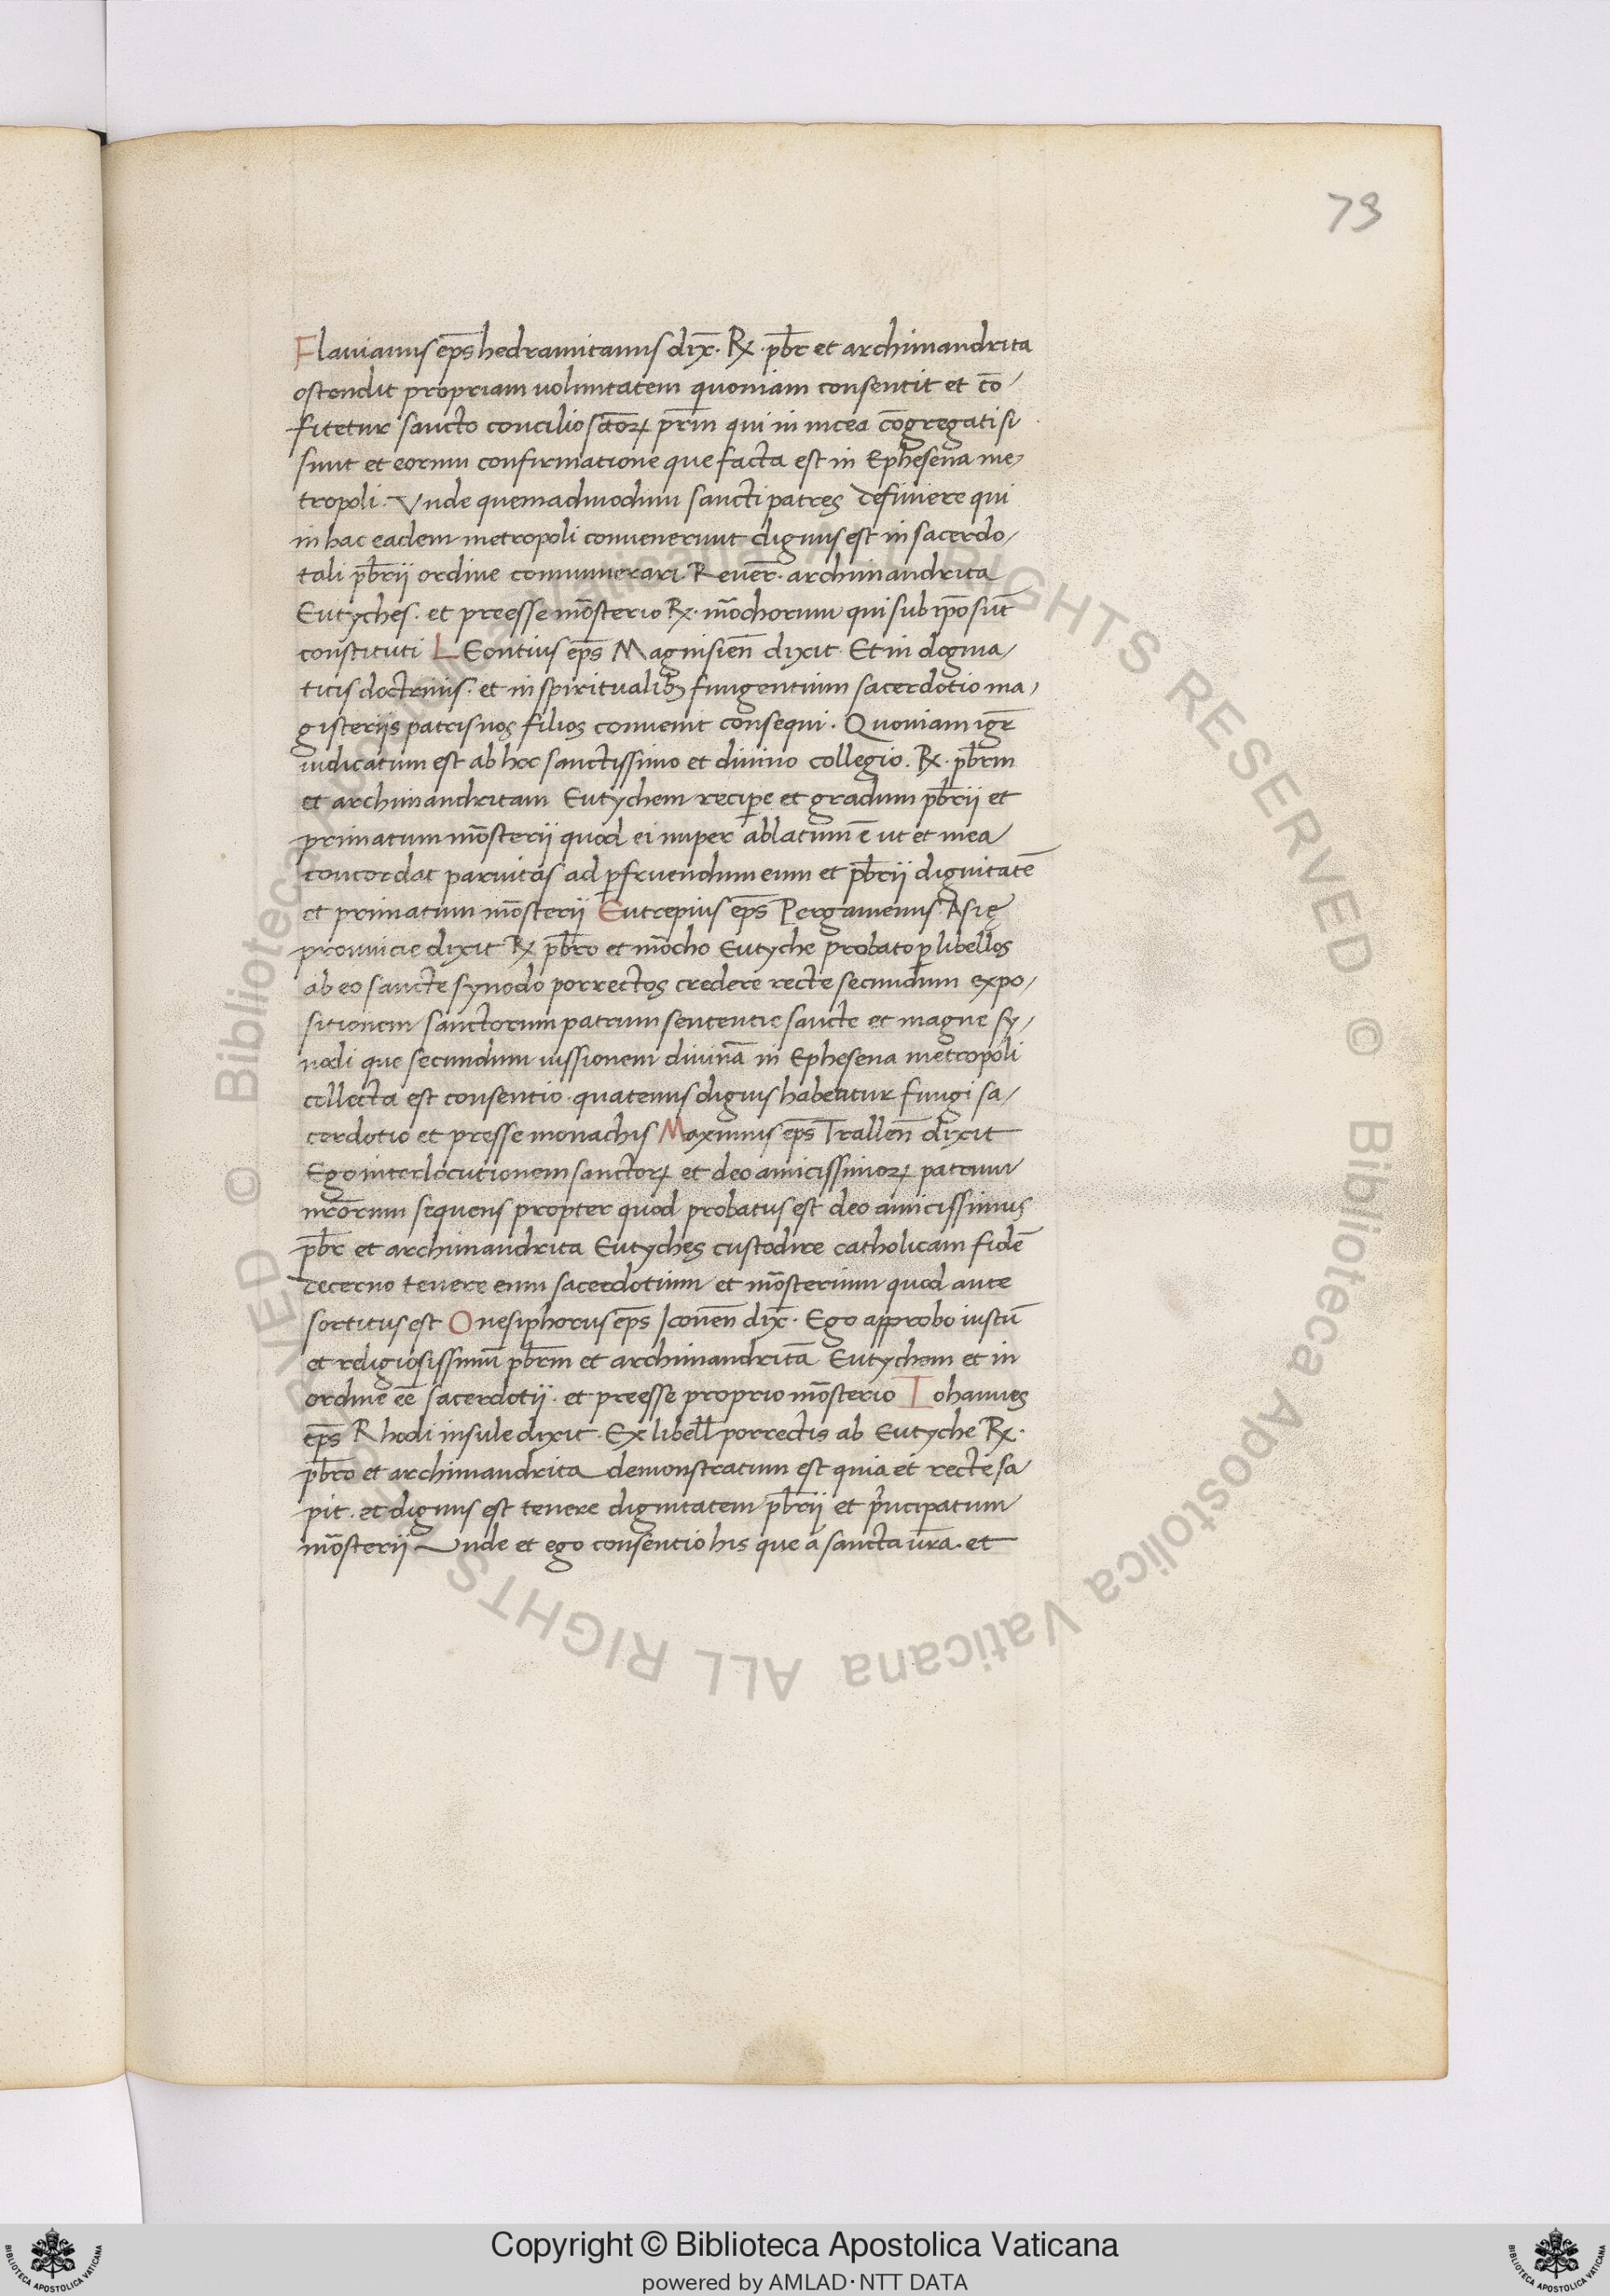 73
Flavianus ep̄s hedramitanus dix̄. Rx̄. pb̄r et archimandrita
ostendit propriam voluntatem quoniam consentit et cō/
fitetur sancto concilio sc̄torꝝ pr̄m qui in nicea cōgregati si
sunt et eorum confirmatione que facta est in Ephesena me/
tropoli. Vnde quemadmodum sancti patres definiere qui
in hac eadem metropoli convenerunt dignus est in sacerdo/
tali pb̄rii ordine connumerari. Reuer̄. archimandrita
Eutyches. et preesse mōsterio Rx̄. mōchorum qui sub ip̄o sūt
constituti LEontius ep̄s Magnisien̄ dixit. Et in dogma/
ticis doctrinis. et in spiritualibꝫ fungentium sacerdotio ma/
gisteriis patrisuos filios convenit consequi. Quoniam igr̄
iudicatum est ab hoc sanctissimo et divino collegio. Rx̄. pb̄rm
et archimandritam Eutychem recipe et gradum pb̄rii et
primatum mōsterii quod ei nuper ablatum ē ut et mea
concordat parvitas ad ꝑfruendum eum et pb̄rii dignitatē
et primatum mōsterii Eutrepius ep̄s Pergamenus Asię
provincie dixit Rx̄ pb̄ro et mōcho Eutyche probato ꝑ libellos
ab eo sancte synodo porrectos credere recte secundum expo/
sitionem sanctorum patrum sententie sancte et magne sy/
nodi que secundum iussionem divinā in Ephesena metropoli
collecta est consentio. quatenus dignus habeatur fungi sa/
cerdotio et presse monachis Maximus ep̄s Trallen̄ dixit
Ego interlocutionem sanctorꝝ et deo amicissimorꝝ patrum
nr̄orum sequens propter quod probatus est deo amicissimus
pb̄r et archimandrita Eutyches custodire catholicam fidē
cecerno tenere eum sacerdotium et mōsterium quod ante
sortitus est Onesiphorus ep̄s Iconen̄ dix̄. Ego approbo iustū
et religiosissimū pb̄rm et archimandritā Eutychem et in
ordine eē sacerdotii. et preesse proprio mōsterio Iohannes
ep̄s Rhodi insule dixit. Ex libell̄ porrectis ab Eutyche Rx̄.
pb̄ro et archimandrita demonstratum est quia et recte sa
pit. et dignus est tenere dignitatem pb̄rii et p̄ncipatum
mōsterii Unde et ego consentio his que a sancta vr̄a. et
© Biblioteca Apostolica Vaticana ALL RIGHTS RESERVED © Biblioteca Apostolica Vaticana ALL RIGHTS RESERVED
Copyright © Biblioteca Apostolica Vaticana
powered by AMLAD·NTT DATA
BIBLIOTECA APOSTOLICA VATICANA
BIBLIOTECA APOSTOLICA VATICANA